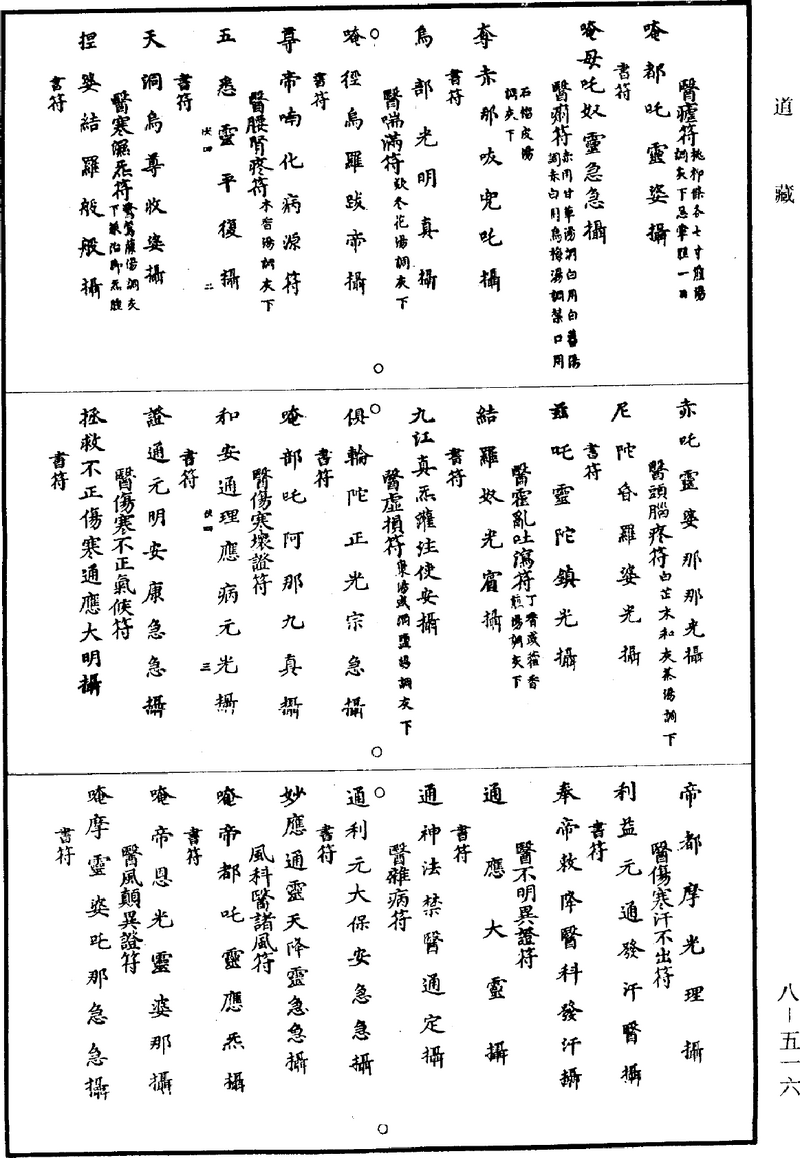 道藏
醫瘧符桃柳條各七寸煎湯調灰下忌葷腥一日
唵都吒靈婆攝
書符
唵母吒奴靈急急攝
醫痢符赤用甘草湯調白用白薑湯調赤白用烏梅湯調禁口用石榴皮湯調灰下
奪赤那吸兜吒攝
書符
烏部光明真攝
醫喘滿符欵冬花湯調灰下
唵徑烏羅跋帝攝
書符
尊帝喃化病源符
醫腰腎疼符木香湯調灰下
五悉靈平復攝
書符
天洞烏尊收婆攝
醫寒濕炁符
捏婆結羅般般攝
書符
赤吒靈婆那那光攝
醫頭腦疼符白芷末和灰茶湯調下
尼陀昏羅婆光攝
書符
茲吒靈陀鎮光攝
醫霍亂吐瀉符丁香或藿香煎湯調灰下
結羅奴光賓攝
書符
九江真炁灌注使安攝
醫虛損符棗湯或調鹽湯調灰下
俱輪陀正光宗急攝
書符
唵部吒阿那九真攝
醫傷寒壞證符
和安通理應病元光攝
書符
證通元明安康急急攝
醫傷寒不正氣候符
拯救不正傷寒通應大明攝
書符
帝都摩光理攝
醫傷寒汗不出符
利益元通發汗醫攝
書符
奉帝敕降醫科發汗攝
醫不明異證符
通應大靈攝
書符
通神法禁醫通定攝
醫雜病符
通利元大保安急急攝
書符
妙應通靈天降靈急急攝
風科醫諸風符
唵帝都吒靈應炁攝
書符
唵帝恩光靈婆那攝
醫風顛異證符
唵摩靈婆吒那急急攝
書符
八—五一六